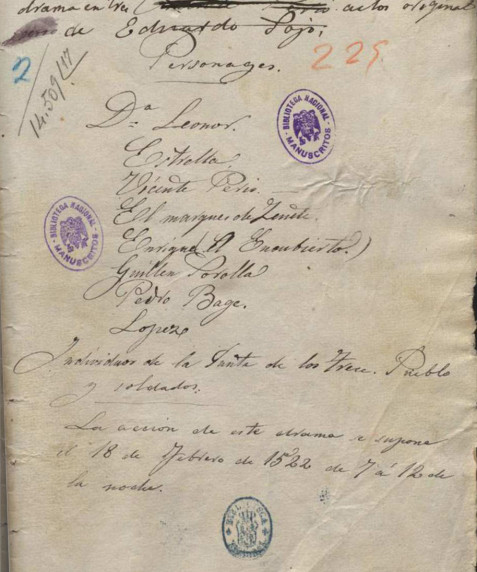 drama en tres actos original
de Eduardo Pojo.
Personages.
225
2
14.509/17
Dª Leonor.
Estrella.
Vicente Peris.
El marques de Zenete.
Enrique (El Encubierto.)
Guillen Sorolla
Pedro Bage.
Lopez
Individuos de la Junta de los Trece. Pueblo
y soldados.
La acción de este drama se supone
el 18 de Febrero de 1522 de 7 á 12 de
la noche.
BIBLIOTECA NACIONAL
MANUSCRITOS
BIBLIOTECA NACIONAL
MANUSCRITOS
BIBLIOTECA